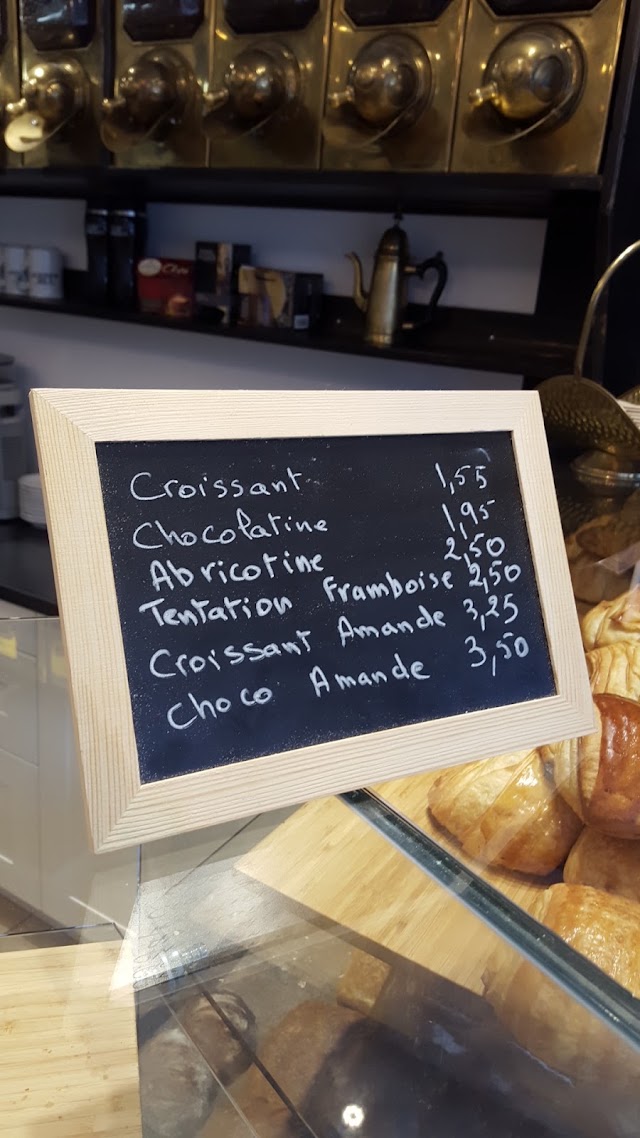 Croissant 1,55
Chocolatine 1,95
Abricotine 2,50
Tentation Framboise 2,50
Croissant Amande 3,25
Choco Amande 3,50